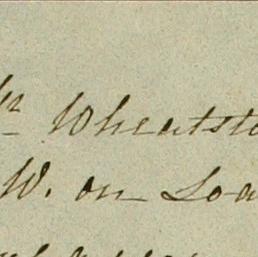 Mr Wheatsto
W. on Loa